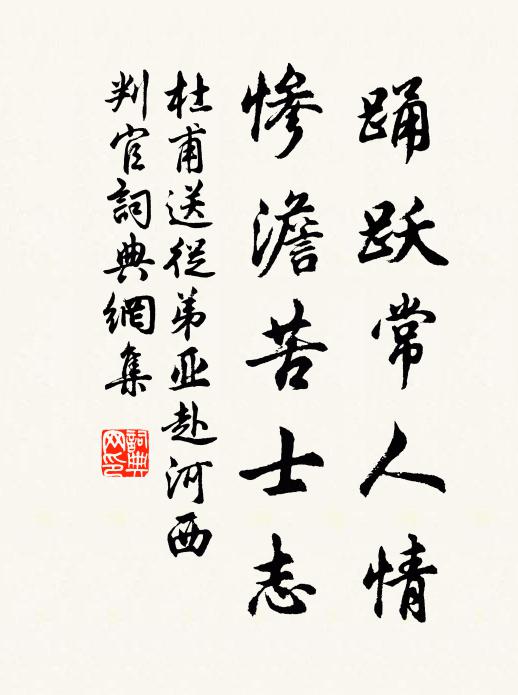 踊跃常人情
惨澹苦士志
杜甫送從弟亚赴河西
判官詞典網集
詞典
网印